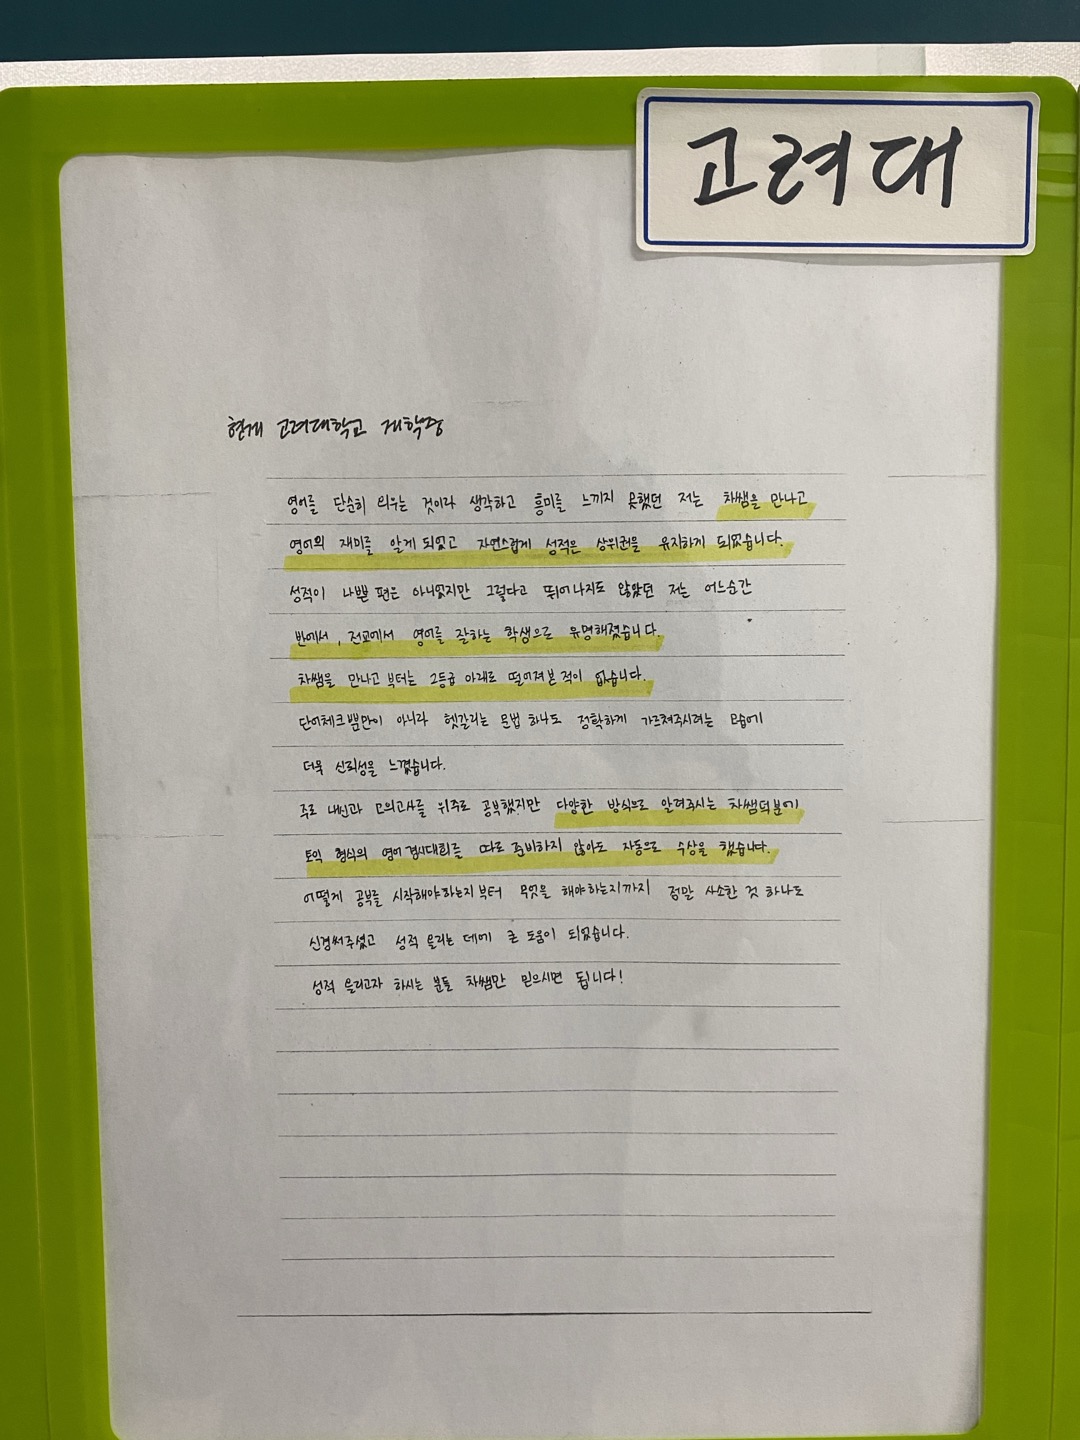 고려대
현재 고려대학교 재학중
영어를 단순히 외우는 것이라 생각하고 흥미를 느끼지 못했던 저는 차쌤을 만나고
영어의 재미를 알게 되었고 자연스럽게 성적은 상위권을 유지하게 되었습니다.
성적이 나쁠 편은 아니었지만 그렇다고 뛰어나지도 않았던 저는 어느순간
반에서, 전교에서 영어를 잘하는 학생으로 유명해졌습니다.
차쌤을 만나고부터는 2등급 아래로 떨어져본 적이 없습니다.
단어체크뿐만이 아니라 헷갈리는 문법 하나도 정확하게 가르쳐주시려는 모습에
더욱 신뢰성을 느꼈습니다.
주로 내신과 모의고사를 위주로 공부했지만 다양한 방식으로 알려주시는 차쌤덕분에
토익 형식의 영어경시대회를 따로 준비하지 않아도 자동으로 수상을 했습니다.
어떻게 공부를 시작해야하는지부터 무엇을 해야하는지까지 정말 사소한 것 하나도
신경써주셨고 성적 올리는 데에 큰 도움이 되었습니다.
성적 올리고자 하시는 분들 차쌤만 믿으시면 됩니다!